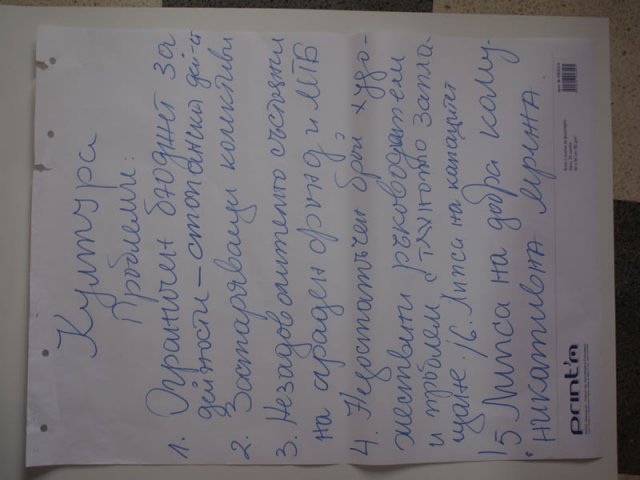 Култура
Проблеми:
1. Ограничен бюджет за
дейности – стопанска дей-ст
2. Застаряващи колективи
3. Незадоволително състояни
на сграден фонд и МТБ
4. Недостатъчен брой худо-
жествени ръководители
и проблем с тяхното запла-
щане. /6. Липса на капацитет
5 Липса на добра кому-
никативна мрежа.
print'm